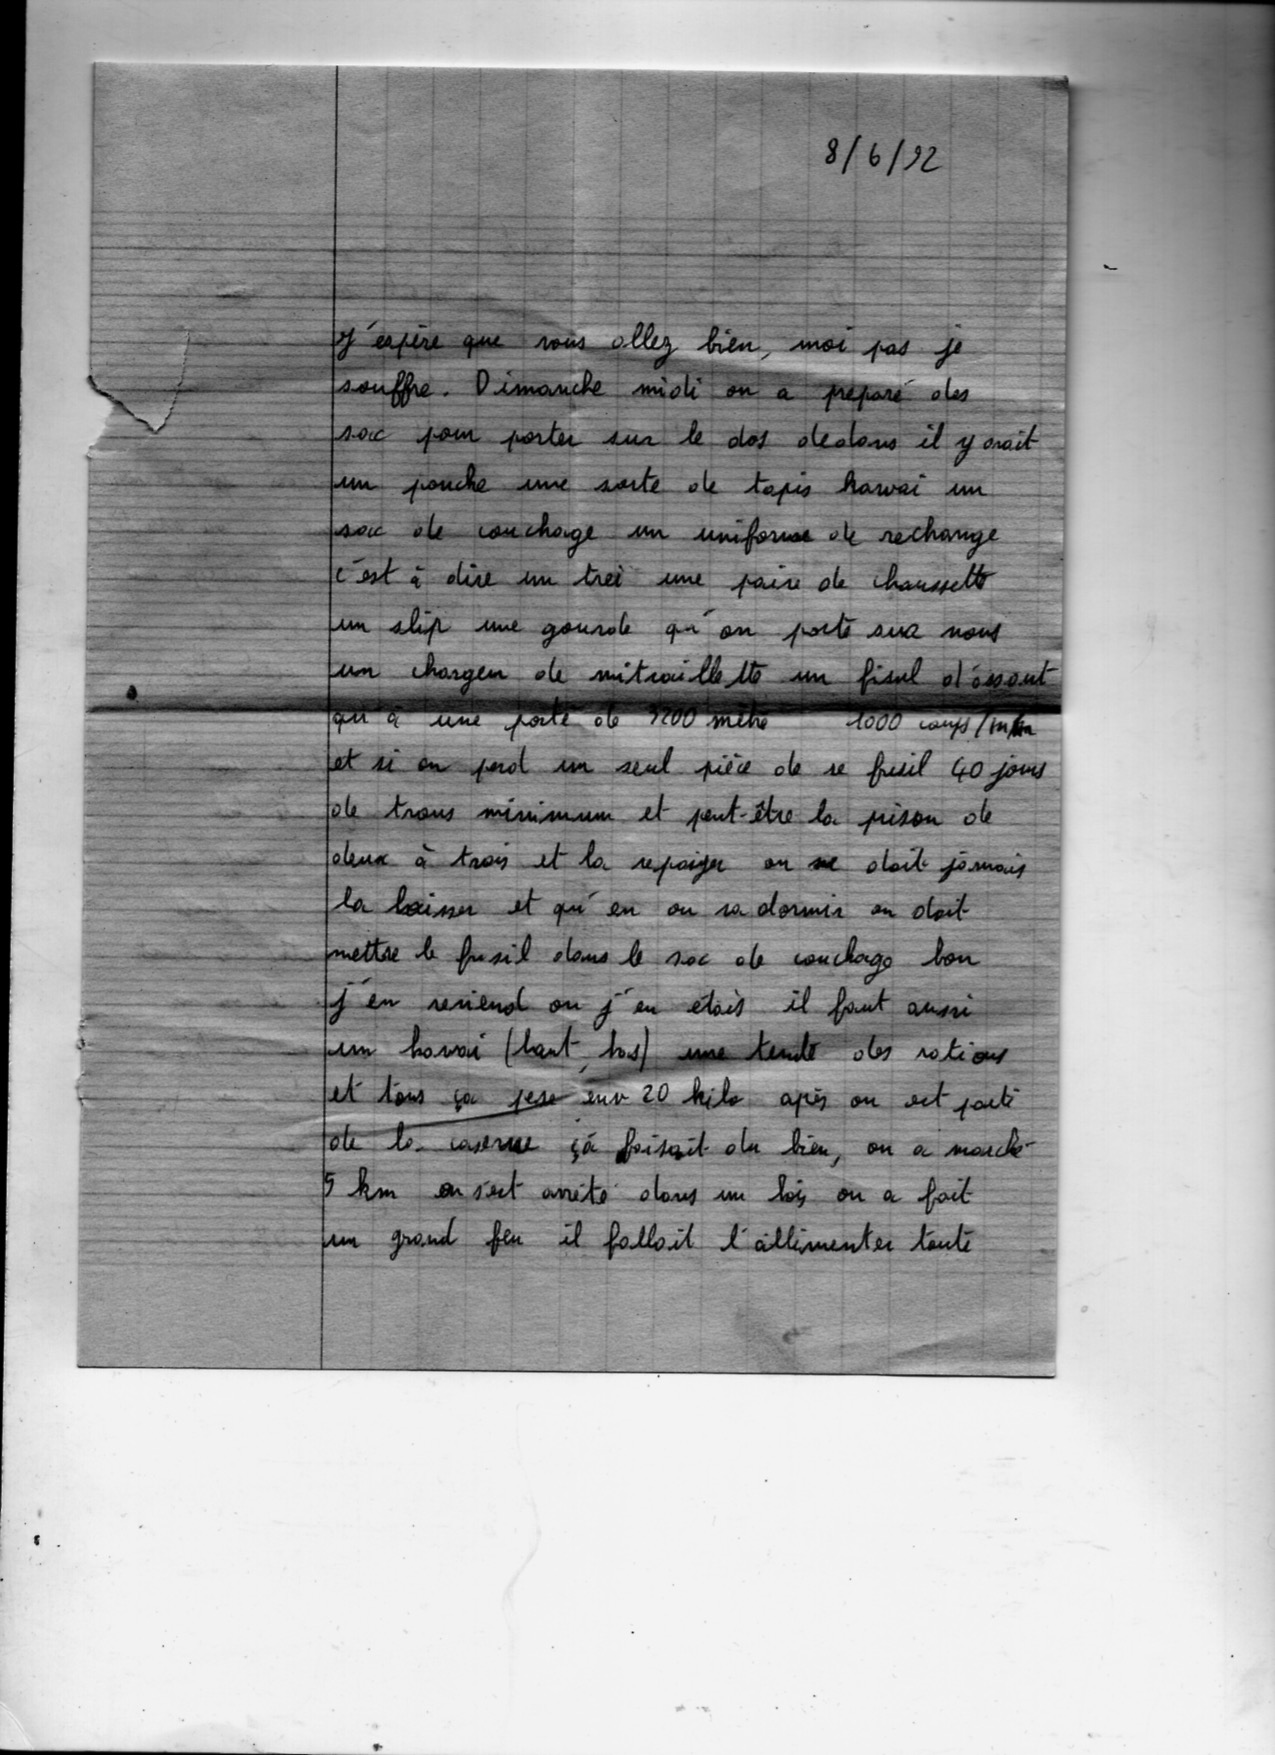 8/6/92
J'espère que vous allez bien, moi pas je
souffre. Dimanche midi on a preparé des
sac pour porter sur le dos dedans il y avait
un poncho une sorte de tapis kawai un
sac de couchage un uniforme de rechange
c'est à dire un trei une paire de chaussette
un slip une gourde qu'on porte sur nous
un chargeu de mitraillette un fisul d'assaut
qu'à une porté de 3200 mètre 1000 coups/min
et si on perd un seul pièce de se fusil 40 jours
de trous minimum et peut-être la prison de
deux à trois et la repaiyer on ne doit jamais
la laisser et qu'en on va dormir on doit
mettre le fusil dans le sac de couchage bon
j'en reviend ou j'en etais il faut aussi
un kawai (haut, bas) une tente des rations
et tous ça pese env 20 kilo après on est parti
de la caserne çà faisait du bien, on a marché
5 km on s'est arrété dans un bois on a fait
un grand feu il fallait l'allimenter toute